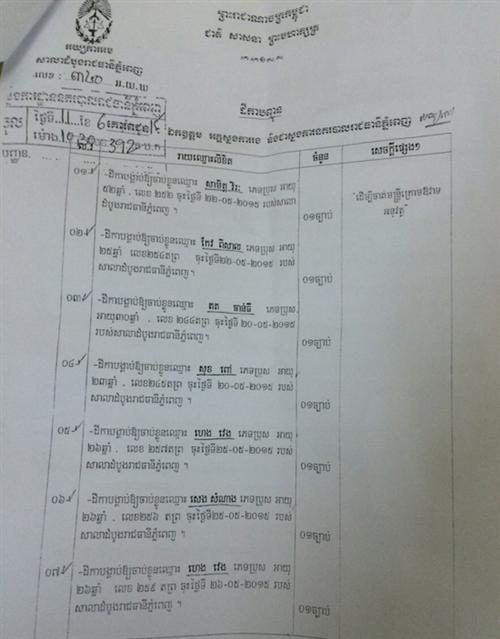 ព្រះរាជាណាចក្រកម្ពុជា
ជាតិ សាសនា ព្រះមហាក្សត្រ
អយ្យការអម
សាលាដំបូងរាជធានីភ្នំពេញ
លេខ : ៣៤០ អ.យ.ឃ
ដីកាបញ្ជូន
ស្នងការដ្ឋាននគរបាលរាជធានីភ្នំពេញ
ចូល ថ្ងៃទី 11 ខែ 6
ម៉ោង
ឯកឧត្តម អគ្គស្នងការរង និងជាស្នងការនគរបាលរាជធានីភ្នំពេញ
រាយឈ្មោះលិខិត ចំនួន សេចក្តីផ្សេងៗ
០១ -ដីកាបង្គាប់ឱ្យចាប់ខ្លួនឈ្មោះ ភេទប្រុស អាយុ
៥២ឆ្នាំ . លេខ ២៥២ ចុះថ្ងៃទី ២២-០៥-២០១៥ របស់សាលា
ដំបូងរាជធានីភ្នំពេញ ។
០១ច្បាប់
"ដើម្បីចាត់មន្ត្រីក្រោមឱវាទ
អនុវត្ត"
០២ -ដីកាបង្គាប់ឱ្យចាប់ខ្លួនឈ្មោះ កែវ ពិសាល ភេទប្រុស អាយុ
២៥ឆ្នាំ . លេខ ២៥៤តព្រ ចុះថ្ងៃទី២២-០៥-២០១៥ របស់
សាលាដំបូងរាជធានីភ្នំពេញ។
០១ច្បាប់
០៣ -ដីកាបង្គាប់ឱ្យចាប់ខ្លួនឈ្មោះ តត ចាន់ធី ភេទប្រុស
អាយុ៣០ឆ្នាំ . លេខ ២៤៤តព្រ ចុះថ្ងៃទី ២០-០៥-២០១៥
របស់សាលាដំបូងរាជធានីភ្នំពេញ ។
០១ច្បាប់
០៤ -ដីកាបង្គាប់ឱ្យចាប់ខ្លួនឈ្មោះ សុខ ពៅ ភេទប្រុស អាយុ
២៣ឆ្នាំ . លេខ២៤៥តព្រ ចុះថ្ងៃទី ២០-០៥-២០១៥ របស់
សាលាដំបូងរាជធានីភ្នំពេញ ។
០១ច្បាប់
០៥ -ដីកាបង្គាប់ឱ្យចាប់ខ្លួនឈ្មោះ ហេង វេង ភេទប្រុស អាយុ
២៦ឆ្នាំ . លេខ ២៥៧តព្រ ចុះថ្ងៃទី២៥-០៥-២០១៥ របស់
សាលាដំបូងរាជធានីភ្នំពេញ ។
០១ច្បាប់
០៦ -ដីកាបង្គាប់ឱ្យចាប់ខ្លួនឈ្មោះ សេង សំណាង ភេទប្រុស អាយុ
២៦ឆ្នាំ . លេខ២៥៦ តព្រ ចុះថ្ងៃទី២៥-០៥-២០១៥ របស់
សាលាដំបូងរាជធានីភ្នំពេញ ។
០១ច្បាប់
០៧ -ដីកាបង្គាប់ឱ្យចាប់ខ្លួនឈ្មោះ ហេង វេង ភេទប្រុស អាយុ
២៦ឆ្នាំ លេខ ២៥៩ តព្រ ចុះថ្ងៃទី ២៦-០៥-២០១៥ របស់
សាលាដំបូងរាជធានីភ្នំពេញ ។
០១ច្បាប់